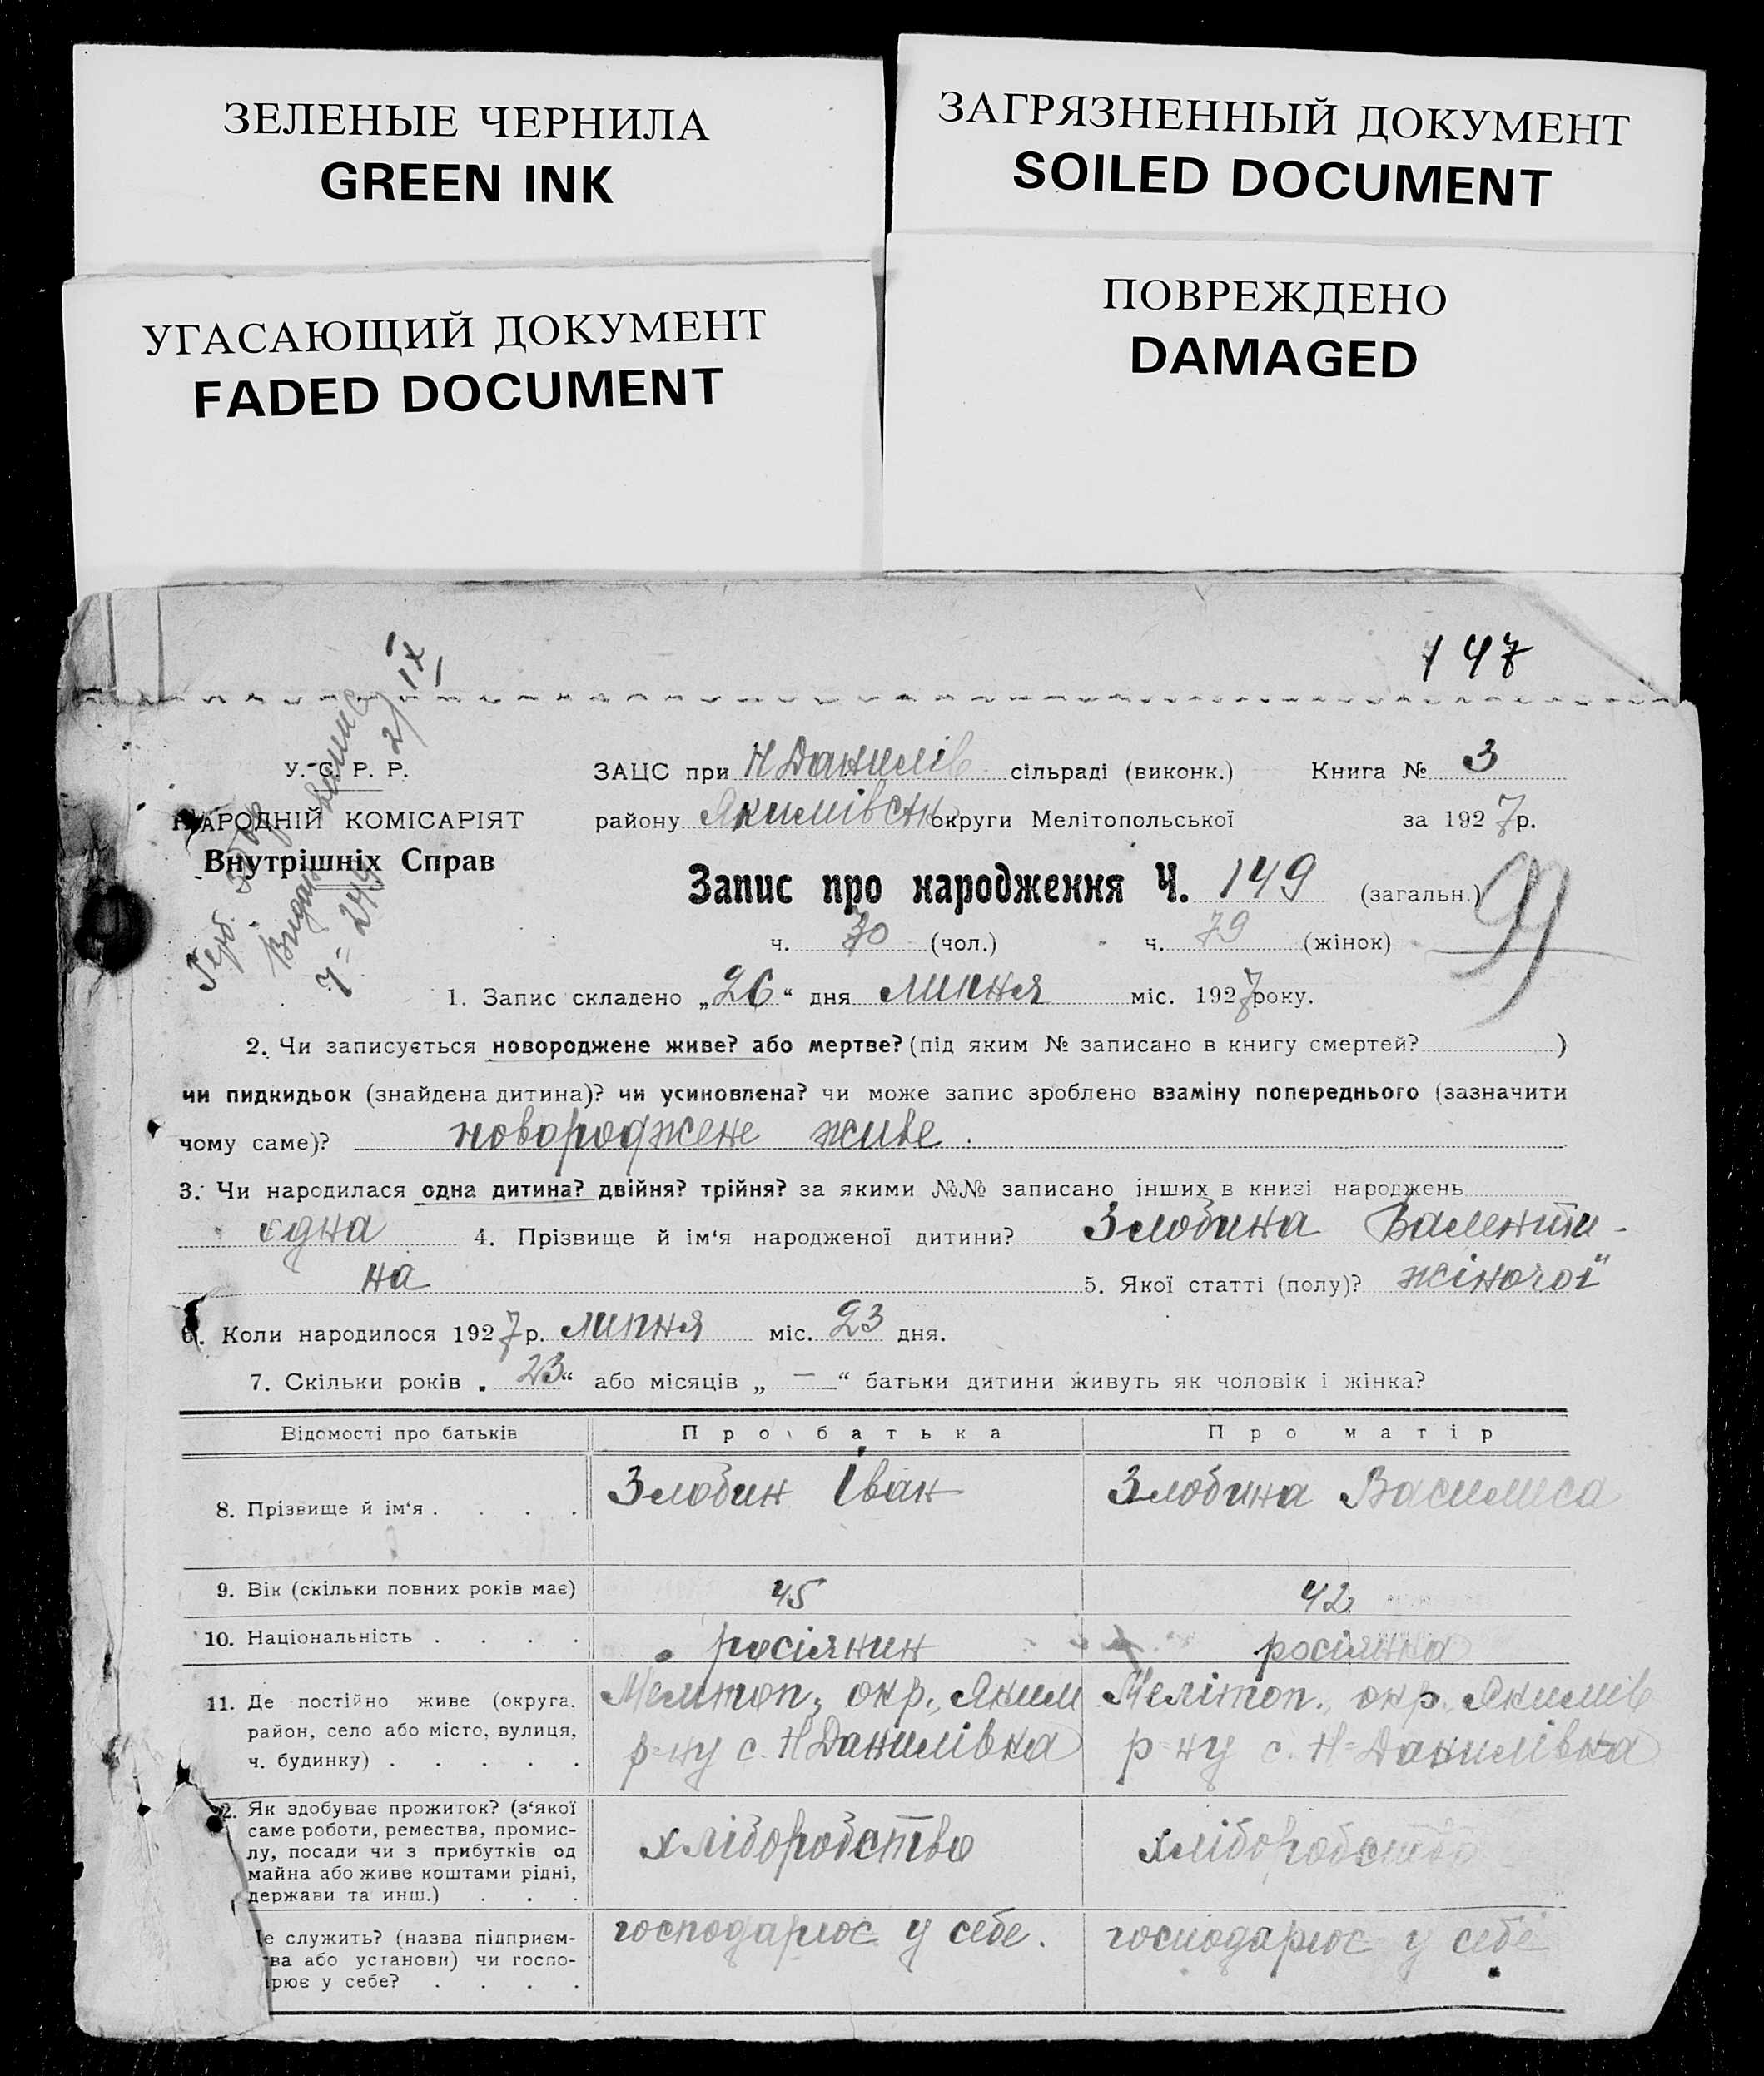 ЗЕЛЕНЫЕ ЧЕРНИЛА
GREEN INK
ЗАГРЯЗНЕННЫЙ ДОКУМЕНТ
SOILED DOCUMENT
УГАСАЮЩИЙ ДОКУМЕНТ
FADED DOCUMENT
ПОВРЕЖДЕНО
DAMAGED
147
У. С. Р. Р.
НАРОДНІЙ КОМІСАРІЯТ
Внутрішніх Справ
ЗАЦС при Н Данилів сільраді (виконк.) Книга № 3
району Якимівськ округи Мелітопольської за 1927 р.
Запис про народження Ч. 149 (загальн.)
99
ч. 70 (чол.) ч. 79 (жінок)
1. Запис складено „26“ дня липня міс. 1927 року.
2. Чи записується новороджене живе? або мертве? (під яким № записано в книгу смертей? )
чи пидкидьок (знайдена дитина)? чи усиновлена? чи може запис зроблено взаміну попереднього (зазначити
чому саме)? новороджене живе.
3. Чи народилася одна дитина? двійня? трійня? за якими №№ записано інших в книзі народжень
одна 4. Прізвище й ім‘я народженої дитини? Злобина Валенти-
на 5. Якої статті (полу)? жіночої
6. Коли народилося 1927 р. липня міс. 23 дня.
7. Скільки років „23“ або місяців „—“ батьки дитини живуть як чоловік і жінка?
Відомості про батьків Про батька Про матір
8. Прізвище й ім‘я . . . . Злобин Іван Злобина Василиса
9. Вік (скільки повних років має) 45 42
10. Національність . . . . росіянин росіянка
11. Де постійно живе (округа, Мелітоп. окр., Яким Мелітоп. окр. Якимів
район, село або місто, вулиця, р-ну с. Н Данилівка р-ну с. Н-Данилівка
ч. будинку) . . . . .
2. Як здобуває прожиток? (з‘якої
саме роботи, ремества, промис- хліборобство хліборобство
лу, посади чи з прибутків од
майна або живе коштами рідні,
держави та инш.) . . .
е служить? (назва підприєм- господарює у себе. господарює у себе
ва або установи) чи госпо-
рює у себе? . . . .